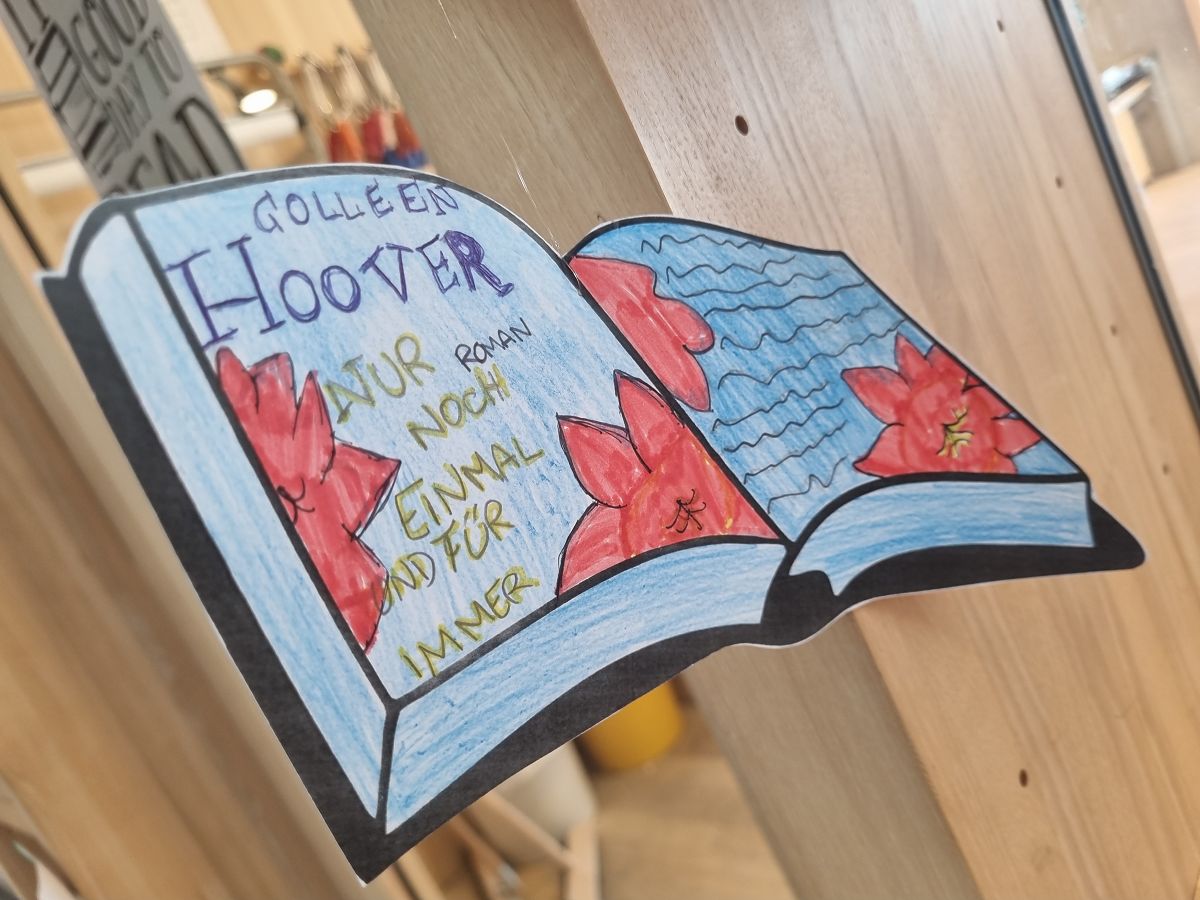 GOOD
DAY TO
READ
GOLLEEN
HOOVER
ROMAN
NUR
NOCH
EINMAL
UND FÜR
IMMER